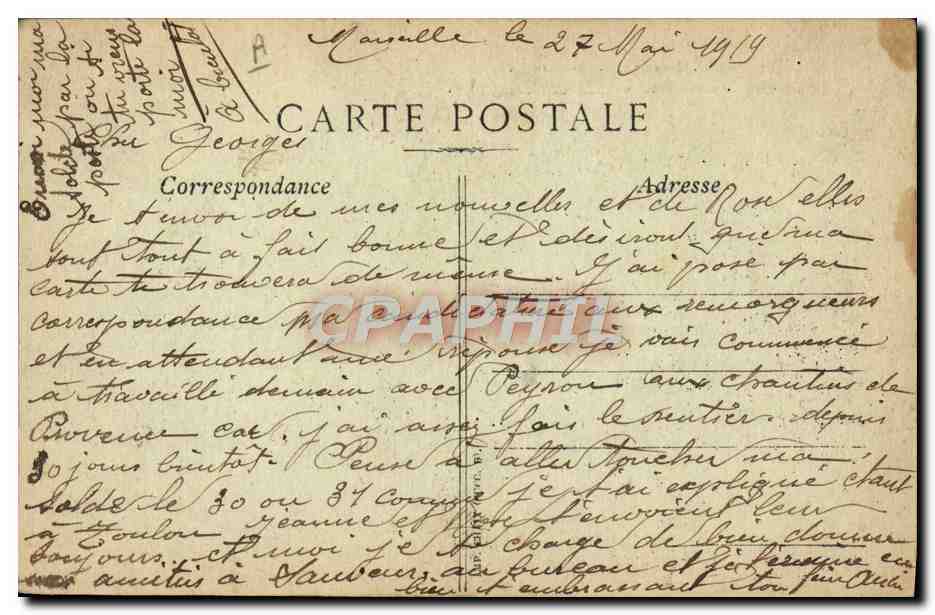 Marseille le 27 Mai 1919
A
CARTE POSTALE
Cher Georges
Correspondance
Adresse
Je t'envoi de mes nouvelles et de Rose elles
sont tout à fait bonne et désiront que ma
carte te trouvera de même. J'ai posé par
correspondance ma candidature aux remorqueurs
et en attendant une réponse je vais commencé
à travaillé demain avec Peyron aux chantiers de
Provence car j'ai assez fais le rentier depuis
30 jours bientôt. Pense à aller toucher ma
solde le 30 ou 31 comme je t'ai expliqué étant
à Toulon Jeanne et t'envoient leur
Toujours et moi je te charge de bien donner
amitiés à Sauveur au bureau et je termine en
bien t'embrassant ton
Envoi moi ma
solde par la
poste ou si
tu viens
porte la
moi
à bientôt
CPAPHIL